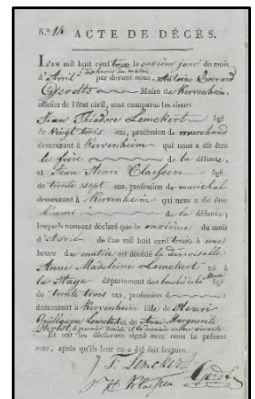 N.º 16 ACTE DE DÉCÈS.
L'AN mil huit cent treize le onzième jour du mois
d'Avril à dix heures du matin
par devant nous, Antoine Everard
Gerdts Maire de Kervenheim,
officier de l'état civil, sont comparus les sieurs
Jean Théodore Lemckert âgé
de vingt trois ans, profession de marchand
demeurant à Kervenheim qui nous a dit être
le frère de la défunte,
et Jean Henri Claessen âgé
de trente sept ans, profession de marechal
demeurant à Kervenheim qui nous a dit être
l'ami de la défunte;
lesquels nous ont déclaré que le onzième du mois
d'Avril de l'an mil huit cent treize à une
heure du matin est décédé la demoiselle
Anne Madeleine Lemckert né à
la Haye département des
de trente trois ans, profession
demeurant à Kervenheim fille de Henri
Guillaume Lemckert et de Anne Marguerite
Et ont les déclarans signé avec nous le présent
acte, après qu'ils leur en a été fait lecture.
J. T. Lemckert
J H Klessen Gerdts